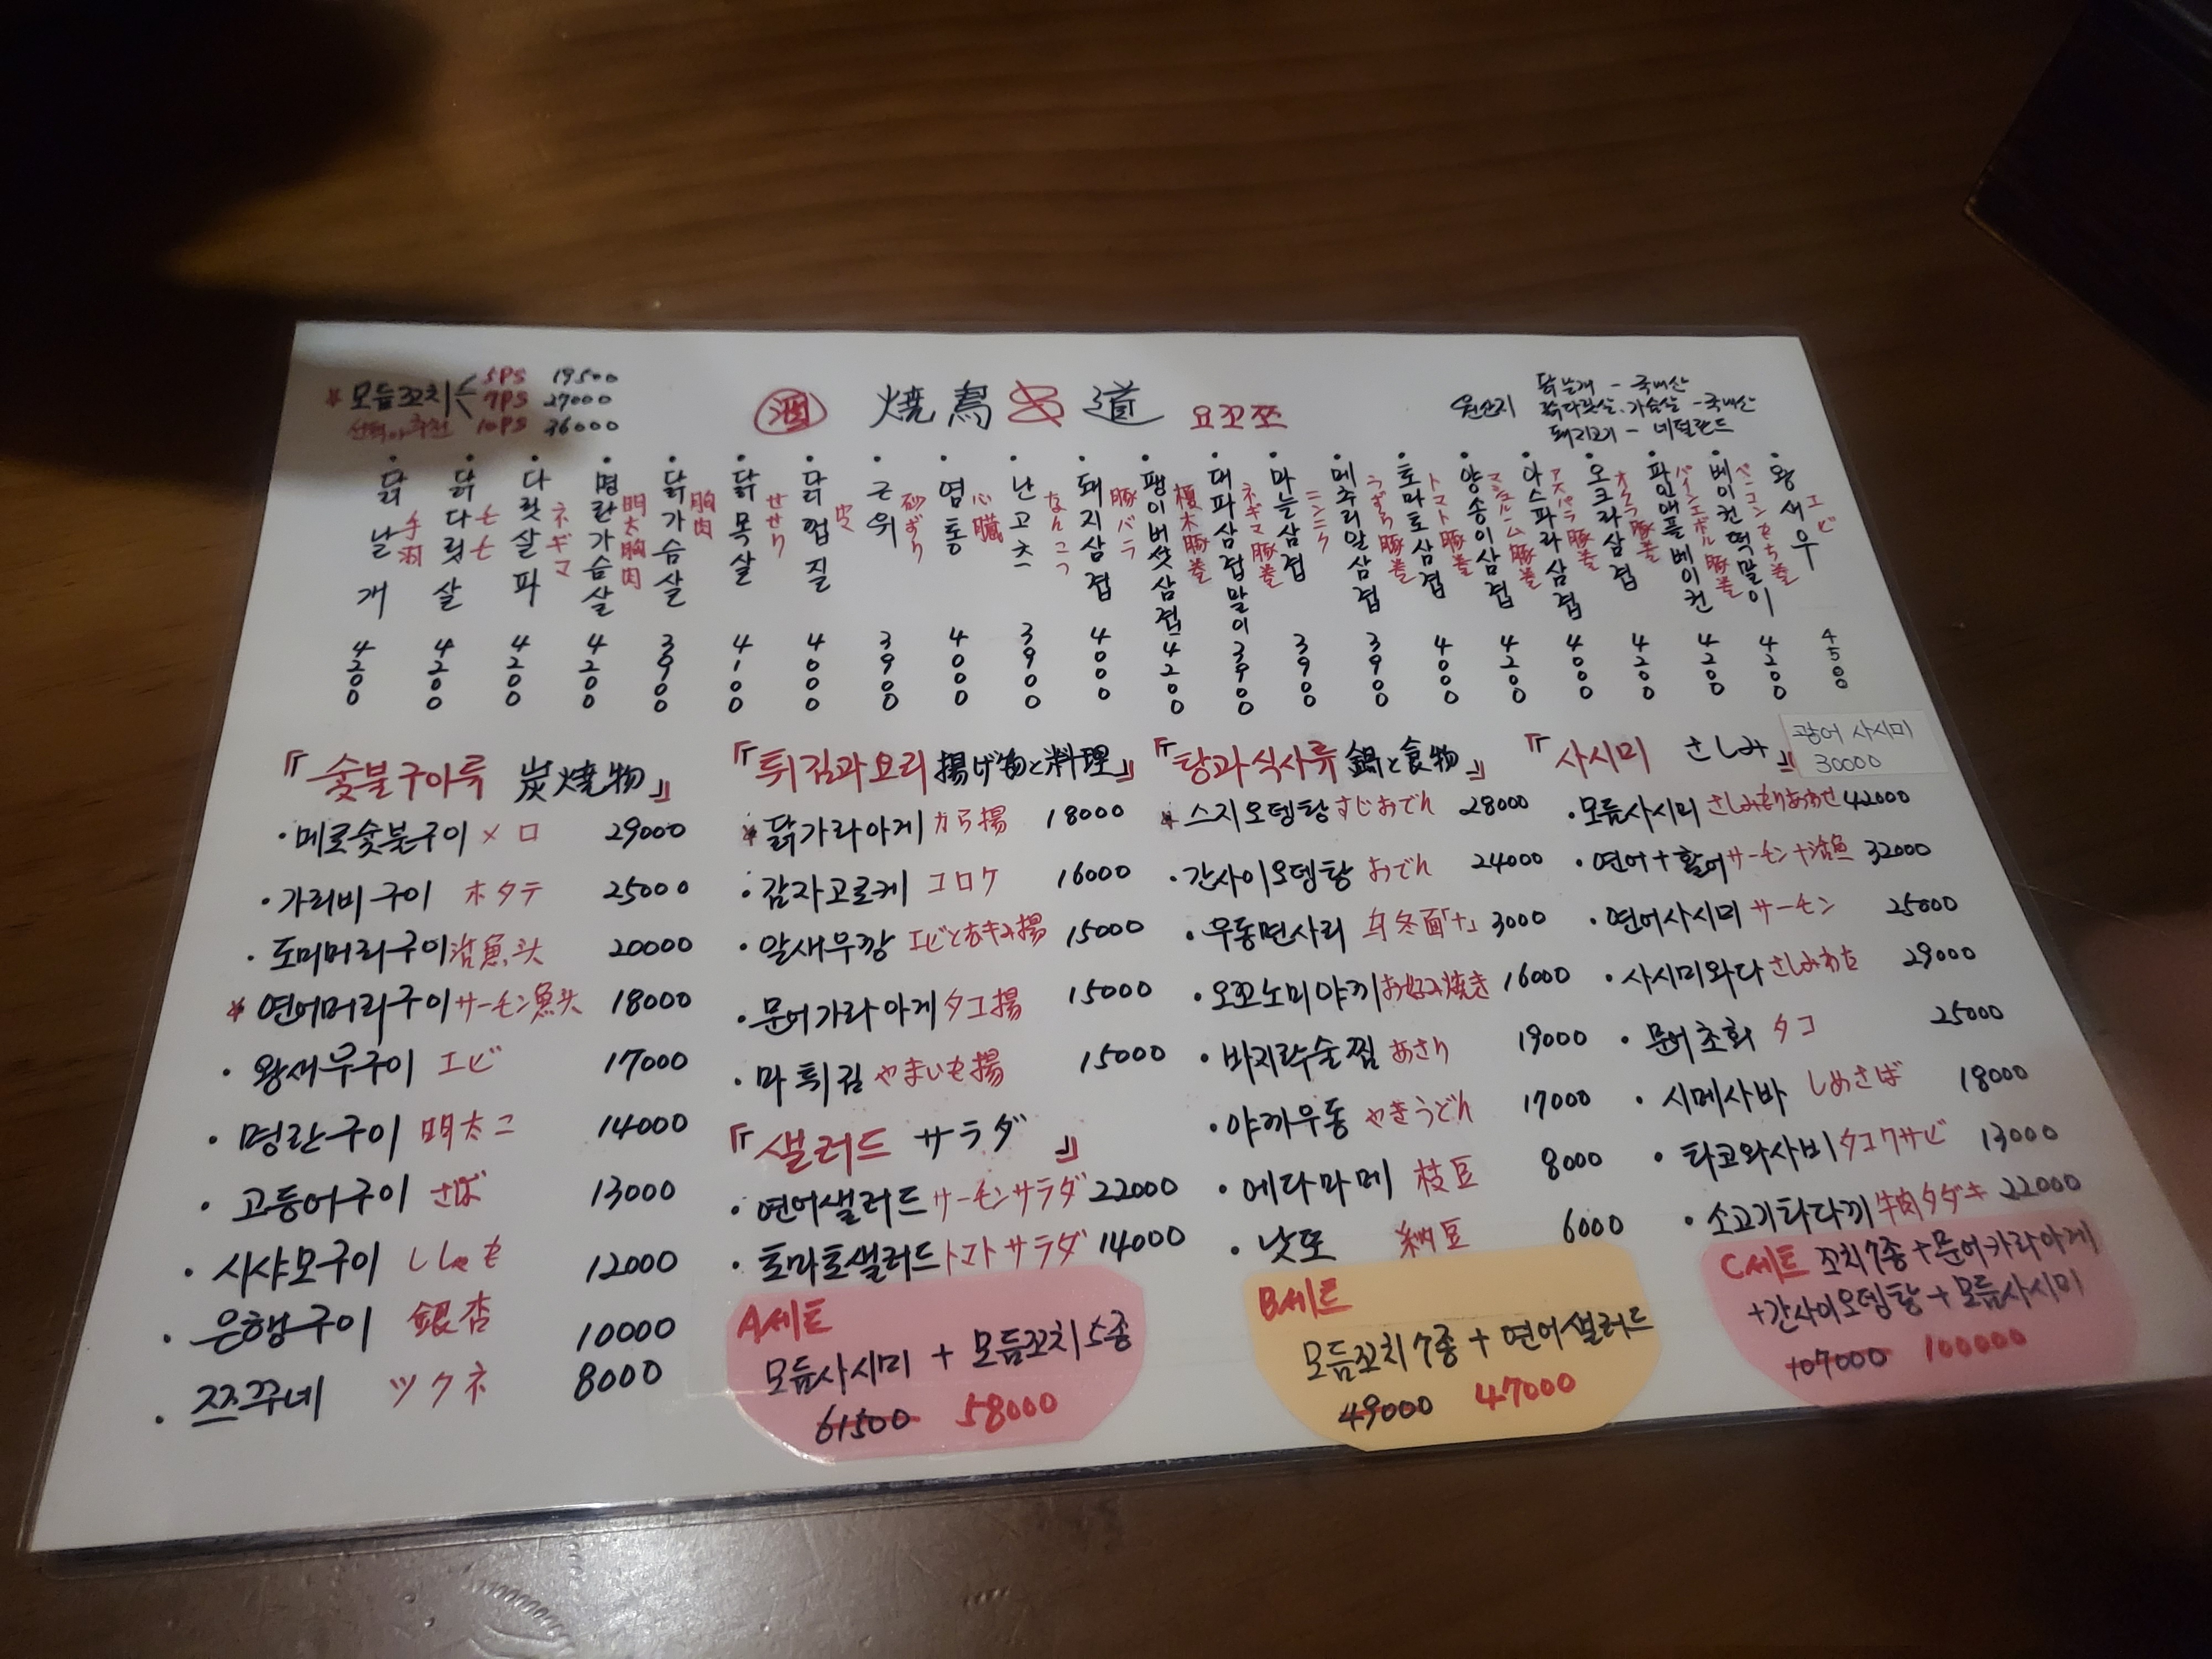 * 모듬꼬치 < 5PS 19500
7PS 27000
10PS 36000
酒 焼鳥 道 요꼬쪼
원산지
닭날개 - 국내산
닭다릿살.가슴살 - 국내산
돼지고기 - 네덜란드
• 닭날개 手羽 4200
• 닭다릿살 モモ 4200
• 다릿살파 ネギマ 4200
• 명란가슴살 明太胸肉 4200
• 닭가슴살 胸肉 3900
• 닭목살 せせり 4100
• 닭껍질 皮 4000
• 근위 砂ずり 3900
• 염통 心臓 4000
• 난고츠 なんこつ 3900
• 돼지삼겹 豚バラ 4000
• 팽이버섯삼겹 榎木豚巻 4200
• 대파삼겹말이 ネギマ豚巻 3900
• 마늘삼겹 ニンニク 3900
• 메추리알삼겹 うずら豚巻 3900
• 토마토삼겹 トマト豚巻 4000
• 양송이삼겹 マシュルーム豚巻 4200
• 아스파라삼겹 アスパラ豚巻 4000
• 오크라삼겹 オクラ豚巻 4200
• 파인애플베이컨 パインエポル豚巻 4200
• 베이컨떡말이 ベーコンもち巻 4200
• 왕새우 エビ 4500
『숯불구이류 炭焼物』
• 메로숯불구이 メロ 29000
• 가리비구이 ホタテ 25000
• 도미머리구이 活魚头 20000
* 연어머리구이 サーモン魚头 18000
• 왕새우구이 エビ 17000
• 명란구이 明太こ 14000
• 고등어구이 さば 13000
• 사샤모구이 ししゃも 12000
• 은행구이 銀杏 10000
• 쯔꾸네 ツクネ 8000
『튀김과요리 揚げ物と料理』
* 닭가라아게 から揚 18000
• 감자고로케 コロケ 16000
• 알새우깡 エビとおキみ揚 15000
• 문어가라아게 タコ揚 15000
• 마튀김 やまいも揚 15000
『샐러드 サラダ』
• 연어샐러드 サーモンサラダ 22000
• 토마토샐러드 トマトサラダ 14000
『탕과식사류 鍋と食物』
* 스지오뎅탕 すじおでん 28000
• 간사이오뎅탕 おでん 24000
• 우동면사리 乌冬面「+」 3000
• 오꼬노미야끼 お好み焼き 16000
• 바지락술찜 あさり 19000
• 야끼우동 やきうどん 17000
• 에다마메 枝豆 8000
• 낫또 納豆 6000
『사시미 さしみ』
광어 사시미
30000
• 모듬사시미 さしみもりあわせ 42000
• 연어+활어 サーモン+活魚 32000
• 연어사시미 サーモン 25000
• 사시미와다 さしみわた 29000
• 문어초회 タコ 25000
• 시메사바 しめさば 18000
• 타코와사비 タコワサビ 13000
• 소고기타다끼 牛肉タダキ 22000
A세트
모듬사시미 + 모듬꼬치5종
61500 58000
B세트
모듬꼬치7종 + 연어샐러드
49000 47000
C세트 꼬치7종+문어카라아게
+간사이오뎅탕+모듬사시미
107000 100000